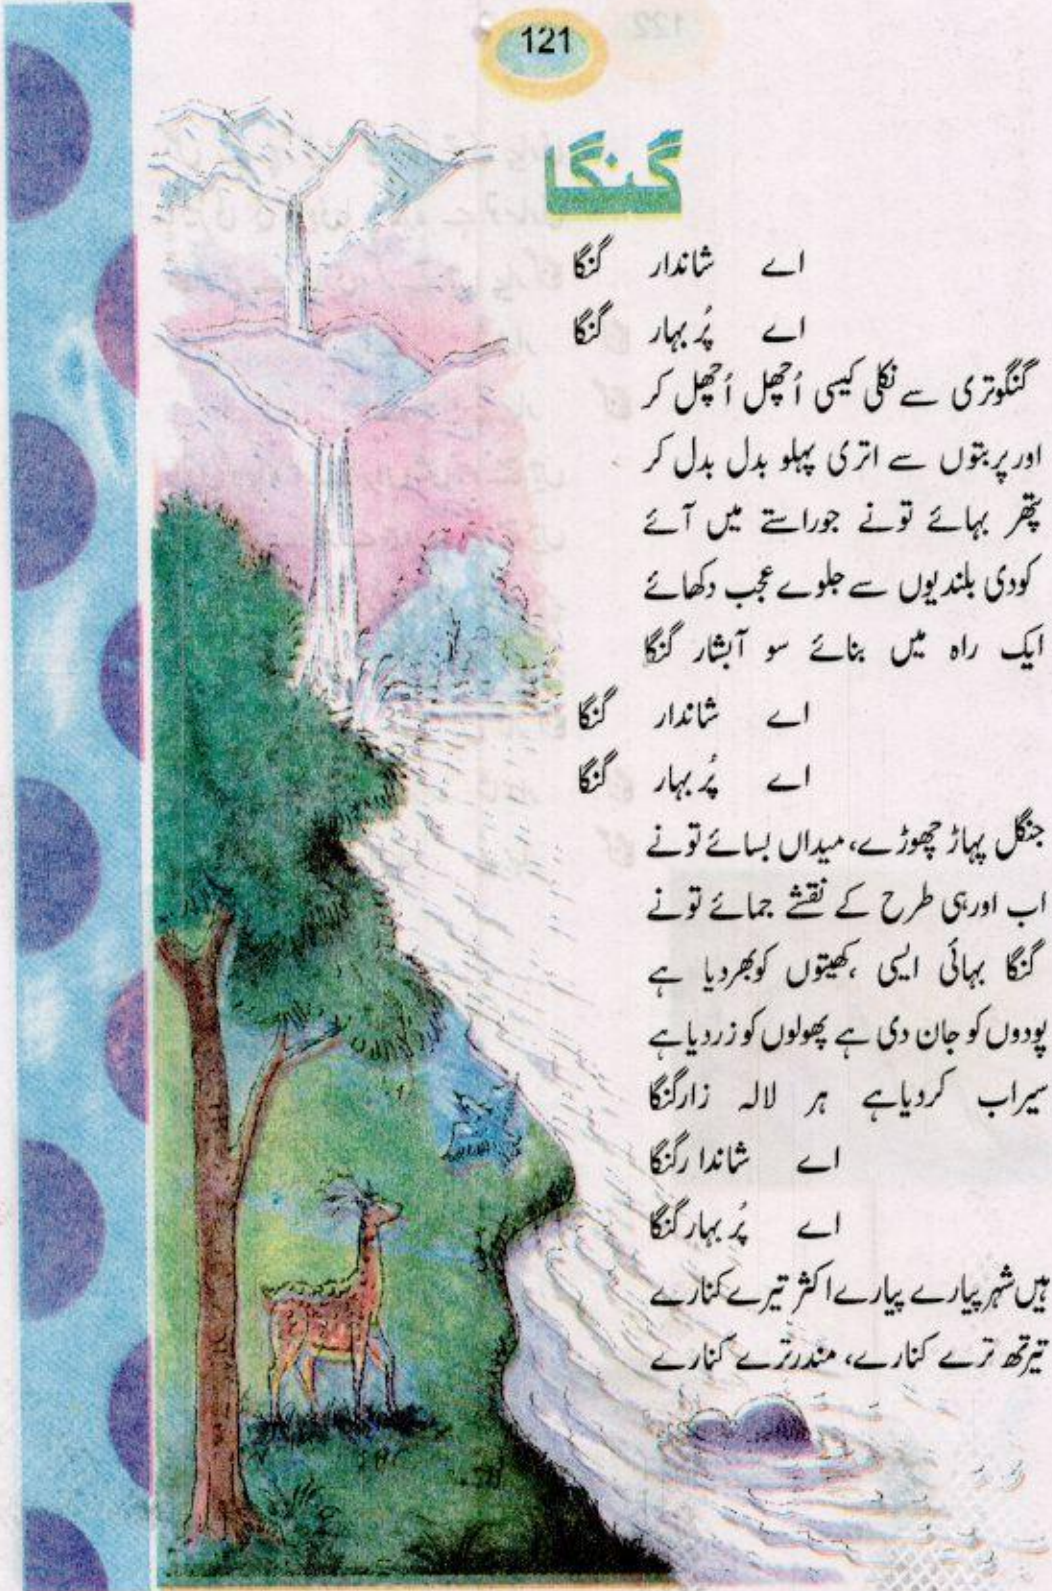 121
گنگا
اے شاندار گنگا
اے پُر بہار گنگا
گنگوتری سے نکلی کیسی اُچھل اُچھل کر
اور پربتوں سے اتری پہلو بدل بدل کر
پتھر بہائے تونے جوراستے میں آئے
کودی بلندیوں سے جلوے عجب دکھائے
ایک راہ میں بنائے سو آبشار گنگا
اے شاندار گنگا
اے پُر بہار گنگا
جنگل پہاڑ چھوڑے، میداں بسائے تونے
اب اورہی طرح کے نقشے جمائے تونے
گنگا بہائی ایسی ،کھیتوں کوبھردیا ہے
پودوں کو جان دی ہے پھولوں کو زردیاہے
سیراب کردیاہے ہر لالہ زارگنگا
اے شاندارگنگا
اے پُر بہارگنگا
ہیں شہر پیارے پیارے اکثر تیرے کنارے
تیرتھ ترے کنارے، مندرترے کنارے